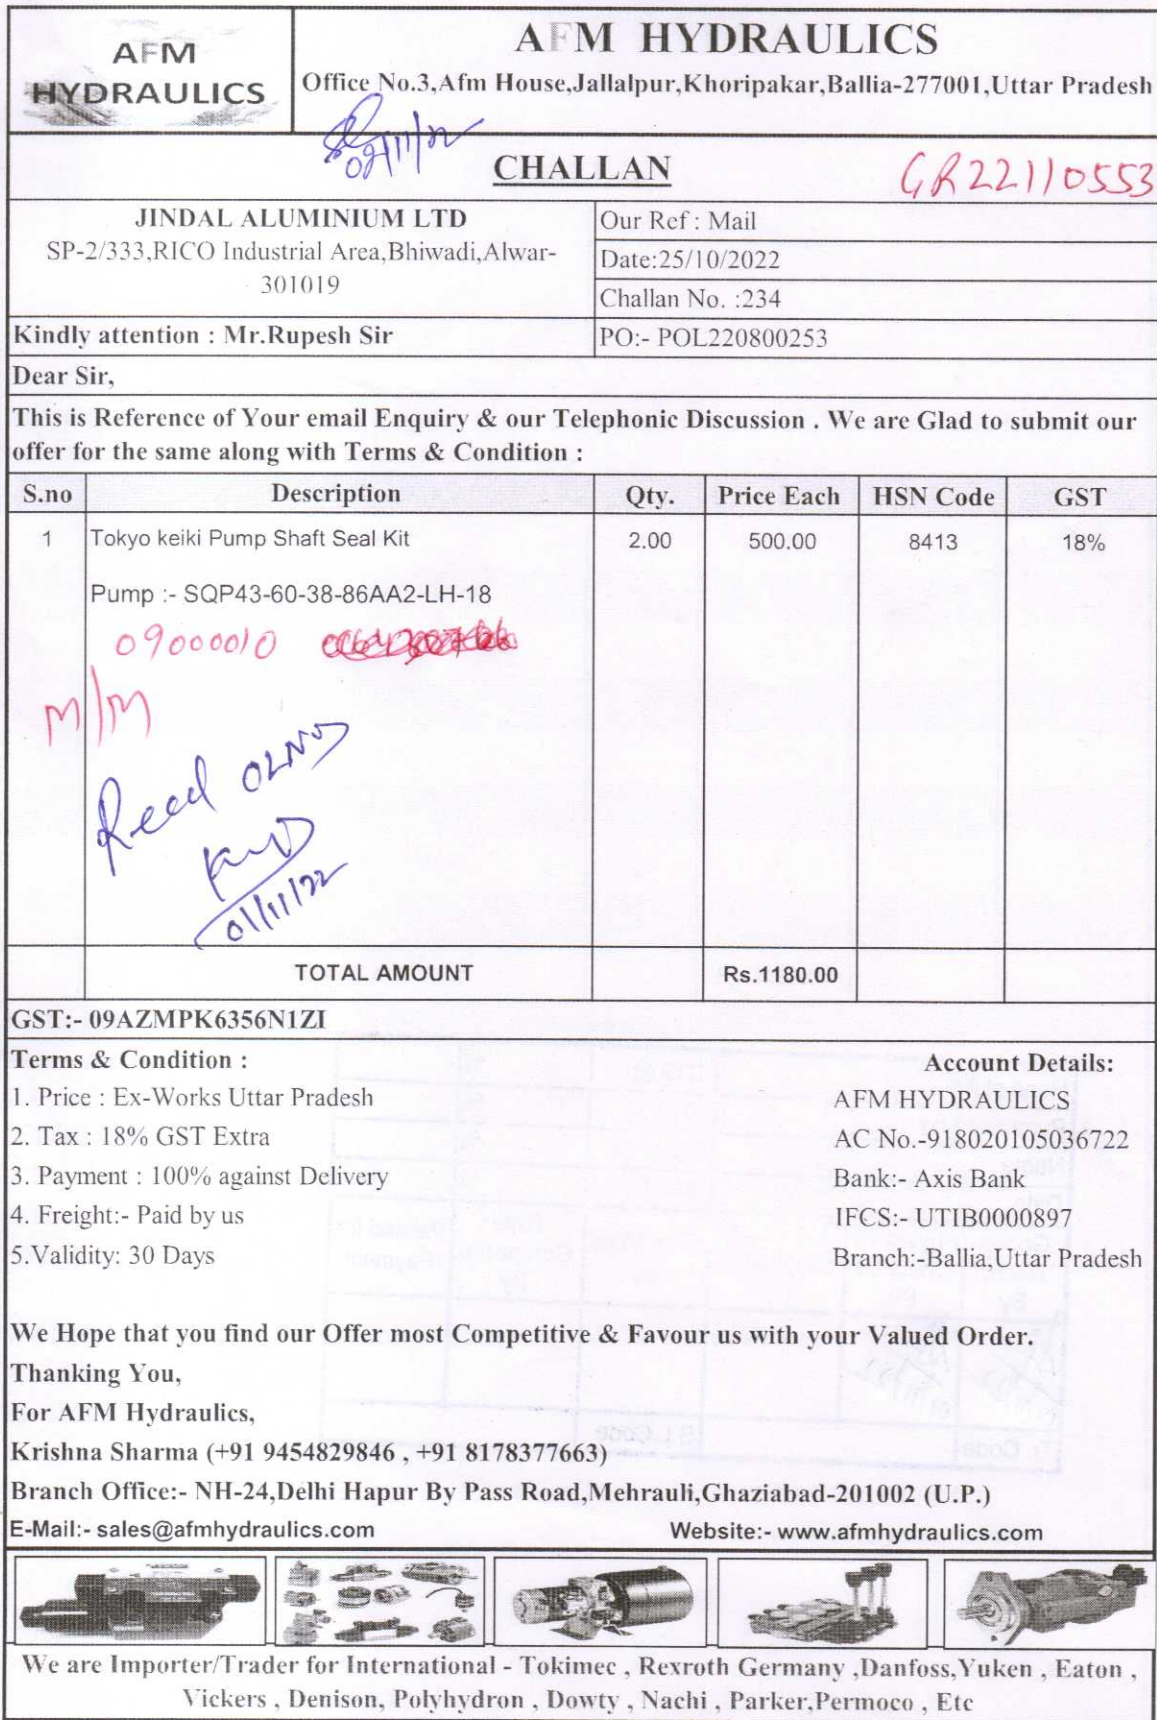 AFM
HYDRAULICS
AFM HYDRAULICS
Office No.3,Afm House,Jallalpur,Khoripakar,Ballia-277001,Uttar Pradesh
02/11/22
CHALLAN
GR22110553
JINDAL ALUMINIUM LTD
SP-2/333,RICO Industrial Area,Bhiwadi,Alwar-
301019
Our Ref : Mail
Date:25/10/2022
Challan No. :234
Kindly attention : Mr.Rupesh Sir
PO:- POL220800253
Dear Sir,
This is Reference of Your email Enquiry & our Telephonic Discussion . We are Glad to submit our
offer for the same along with Terms & Condition :
S.no Description Qty. Price Each HSN Code GST
1 Tokyo keiki Pump Shaft Seal Kit 2.00 500.00 8413 18%
Pump :- SQP43-60-38-86AA2-LH-18
09000010
M/M
Recd 02NOS
01/11/22
TOTAL AMOUNT Rs.1180.00
GST:- 09AZMPK6356N1ZI
Terms & Condition :
1. Price : Ex-Works Uttar Pradesh
2. Tax : 18% GST Extra
3. Payment : 100% against Delivery
4. Freight:- Paid by us
5.Validity: 30 Days
Account Details:
AFM HYDRAULICS
AC No.-918020105036722
Bank:- Axis Bank
IFCS:- UTIB0000897
Branch:-Ballia,Uttar Pradesh
We Hope that you find our Offer most Competitive & Favour us with your Valued Order.
Thanking You,
For AFM Hydraulics,
Krishna Sharma (+91 9454829846 , +91 8178377663)
Branch Office:- NH-24,Delhi Hapur By Pass Road,Mehrauli,Ghaziabad-201002 (U.P.)
E-Mail:- sales@afmhydraulics.com Website:- www.afmhydraulics.com
We are Importer/Trader for International - Tokimec , Rexroth Germany ,Danfoss,Yuken , Eaton ,
Vickers , Denison, Polyhydron , Dowty , Nachi , Parker,Permoco , Etc